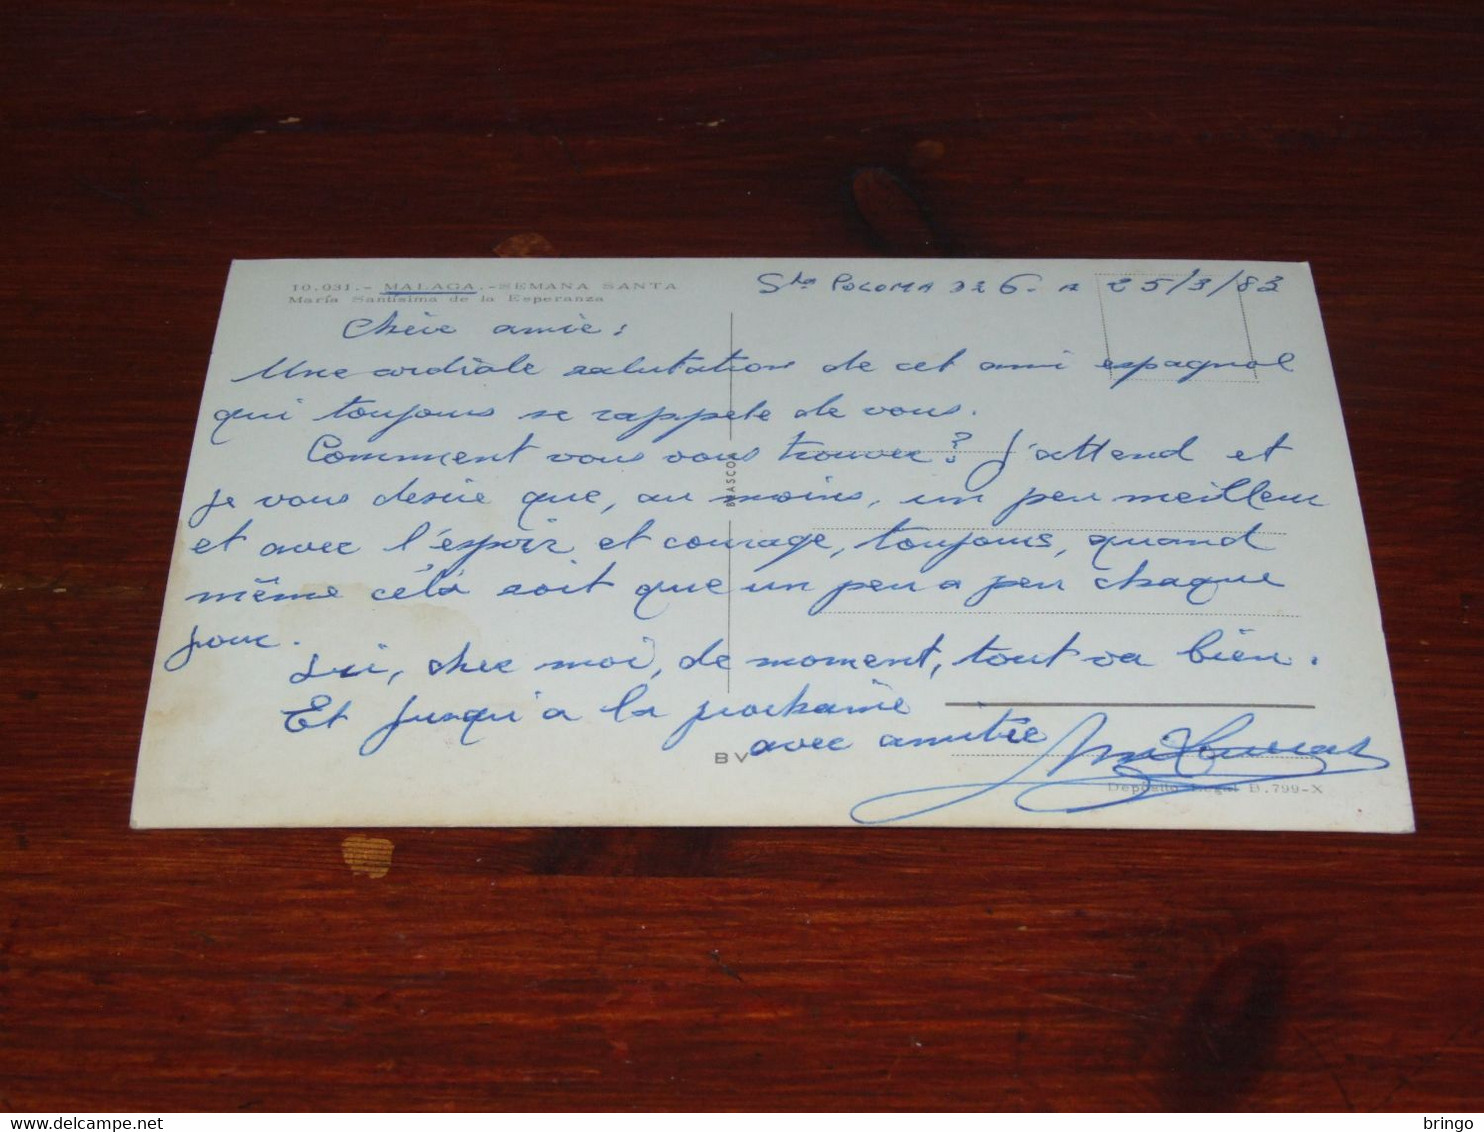 10.031.- MALAGA.-SEMANA SANTA
María Santísima de la Esperanza
Sta Poloma de G. a 25/3/83
Chère amie:
Une cordiàle salutation de cet ami espagnol
qui toujours se rappele de vous.
Comment vous vous trouvez? J'attend et
je vous desire que, au moins, un peu meilleur
et avec l'espoir et courage, toujours, quand
même célà soit que un peu a peu chaque
jour.
Ici, chez moi, de moment, tout va bien.
Et jusqu'a la prochaine
avec amitié
BEASCOA
BV
Depósito Legal B.799-X
delcampe.net
bringo